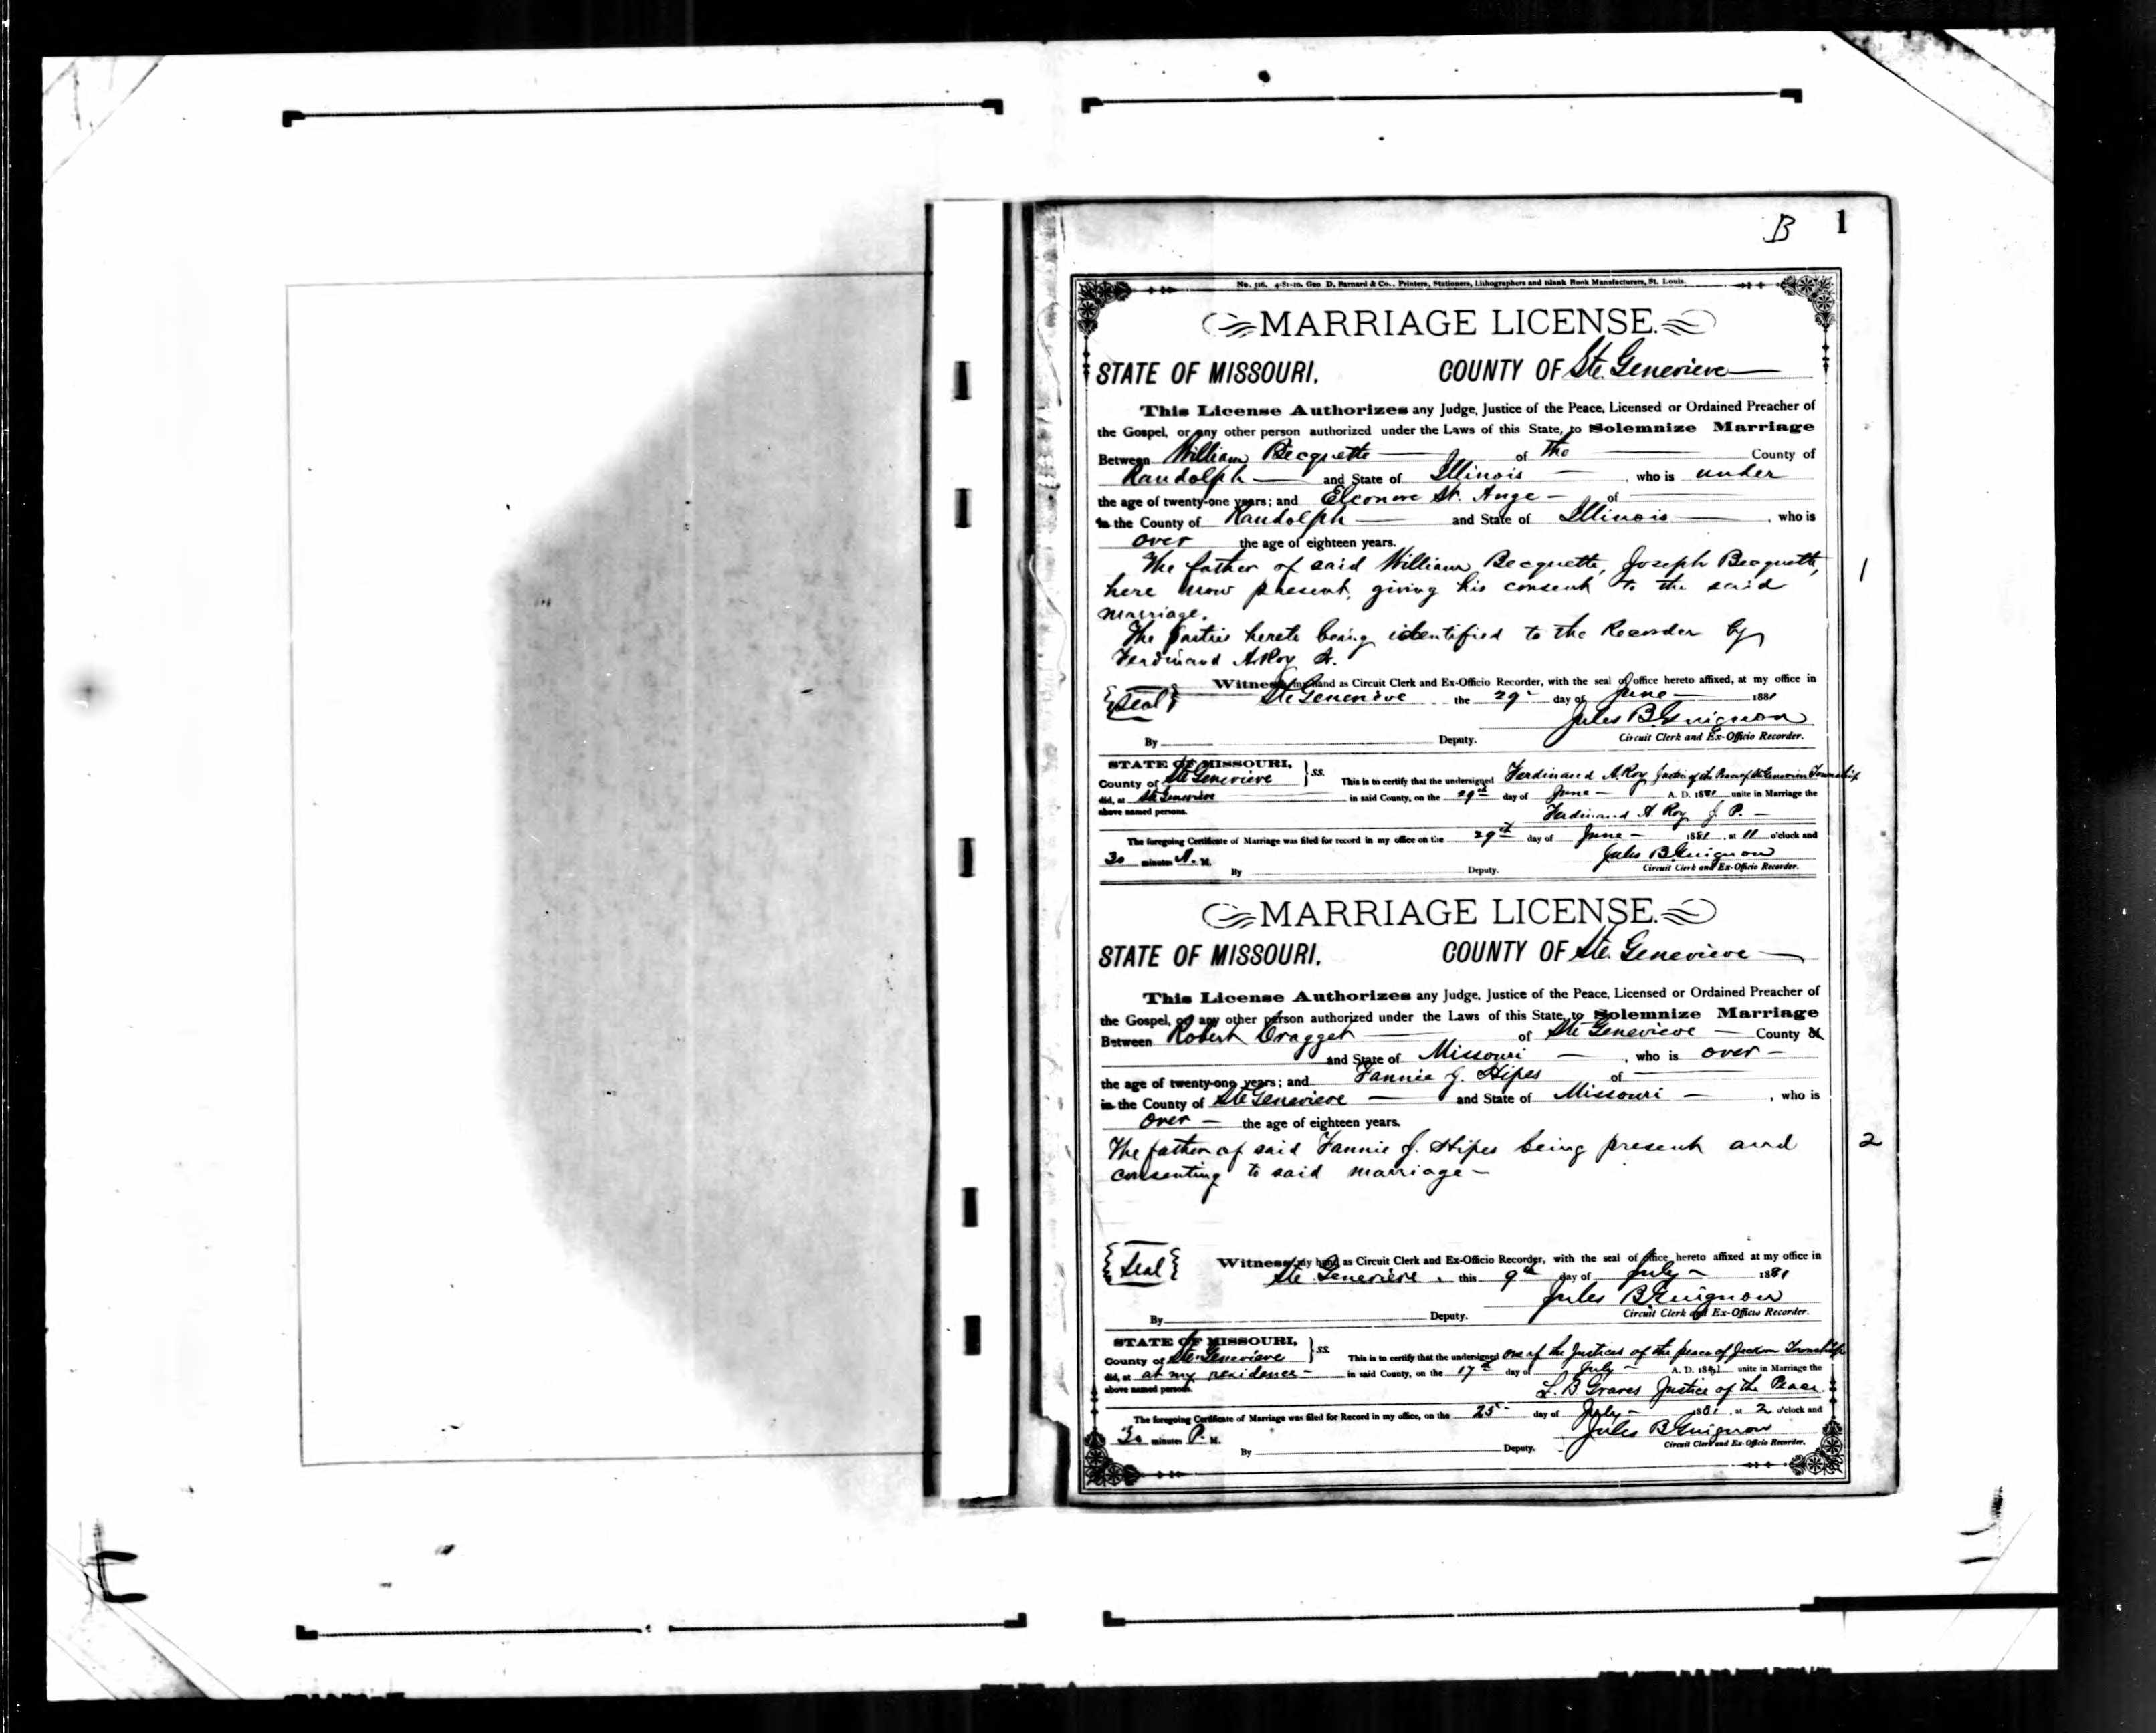 B 1
No. 516. 4-81-10. Geo D. Barnard & Co., Printers, Stationers, Lithographers and Blank Book Manufacturers, St. Louis.
MARRIAGE LICENSE.
STATE OF MISSOURI. COUNTY OF Ste. Genevieve
This License Authorizes any Judge, Justice of the Peace, Licensed or Ordained Preacher of
the Gospel, or any other person authorized under the Laws of this State, to Solemnize Marriage
Between William Becquette of the County of
Randolph and State of Illinois, who is under
the age of twenty-one years; and Eleonore St. Ange of
in the County of Randolph and State of Illinois, who is
over the age of eighteen years.
The father of said William Becquette, Joseph Becquette,
here now present, giving his consent to the said
marriage.
The parties hereto being identified to the Recorder by
Ferdinand A. Roy Sr.
Witness my hand as Circuit Clerk and Ex-Officio Recorder, with the seal of office hereto affixed, at my office in
{Seal} Ste Genevieve the 29th day of June 1881
Jules B Guignon
By Deputy. Circuit Clerk and Ex-Officio Recorder.
STATE OF MISSOURI,
County of Ste Genevieve } SS. This is to certify that the undersigned Ferdinand A. Roy Justice of the Peace of Ste Genevieve Township
did, at Ste Genevieve in said County, on the 29th day of June A. D. 1881 unite in Marriage the
above named persons.
Ferdinand A Roy J. P.
The foregoing Certificate of Marriage was filed for record in my office on the 29th day of June 1881, at 11 o'clock and
30 minutes A. M. Jules B Guignon
By Deputy. Circuit Clerk and Ex-Officio Recorder.
1
MARRIAGE LICENSE.
STATE OF MISSOURI. COUNTY OF Ste. Genevieve
This License Authorizes any Judge, Justice of the Peace, Licensed or Ordained Preacher of
the Gospel, or any other person authorized under the Laws of this State, to Solemnize Marriage
Between Robert Dragget of Ste Genevieve County &
and State of Missouri, who is over
the age of twenty-one years; and Fannie J. Hipes of
in the County of Ste Genevieve and State of Missouri, who is
over the age of eighteen years.
The father of said Fannie J. Hipes being present and
consenting to said marriage
2
Witness my hand as Circuit Clerk and Ex-Officio Recorder, with the seal of office hereto affixed at my office in
{Seal} Ste. Genevieve, this 9th day of July 1881
Jules B Guignon
By Deputy. Circuit Clerk and Ex-Officio Recorder.
STATE OF MISSOURI,
County of Ste. Genevieve } SS. This is to certify that the undersigned one of the Justices of the peace of Jackson Township
did, at at my residence in said County, on the 17th day of July A. D. 1881 unite in Marriage the
above named persons.
L. B Graves Justice of the Peace.
The foregoing Certificate of Marriage was filed for Record in my office, on the 25 day of July 1881, at 2 o'clock and
30 minutes P. M. Jules B Guignon
By Deputy. Circuit Clerk and Ex-Officio Recorder.